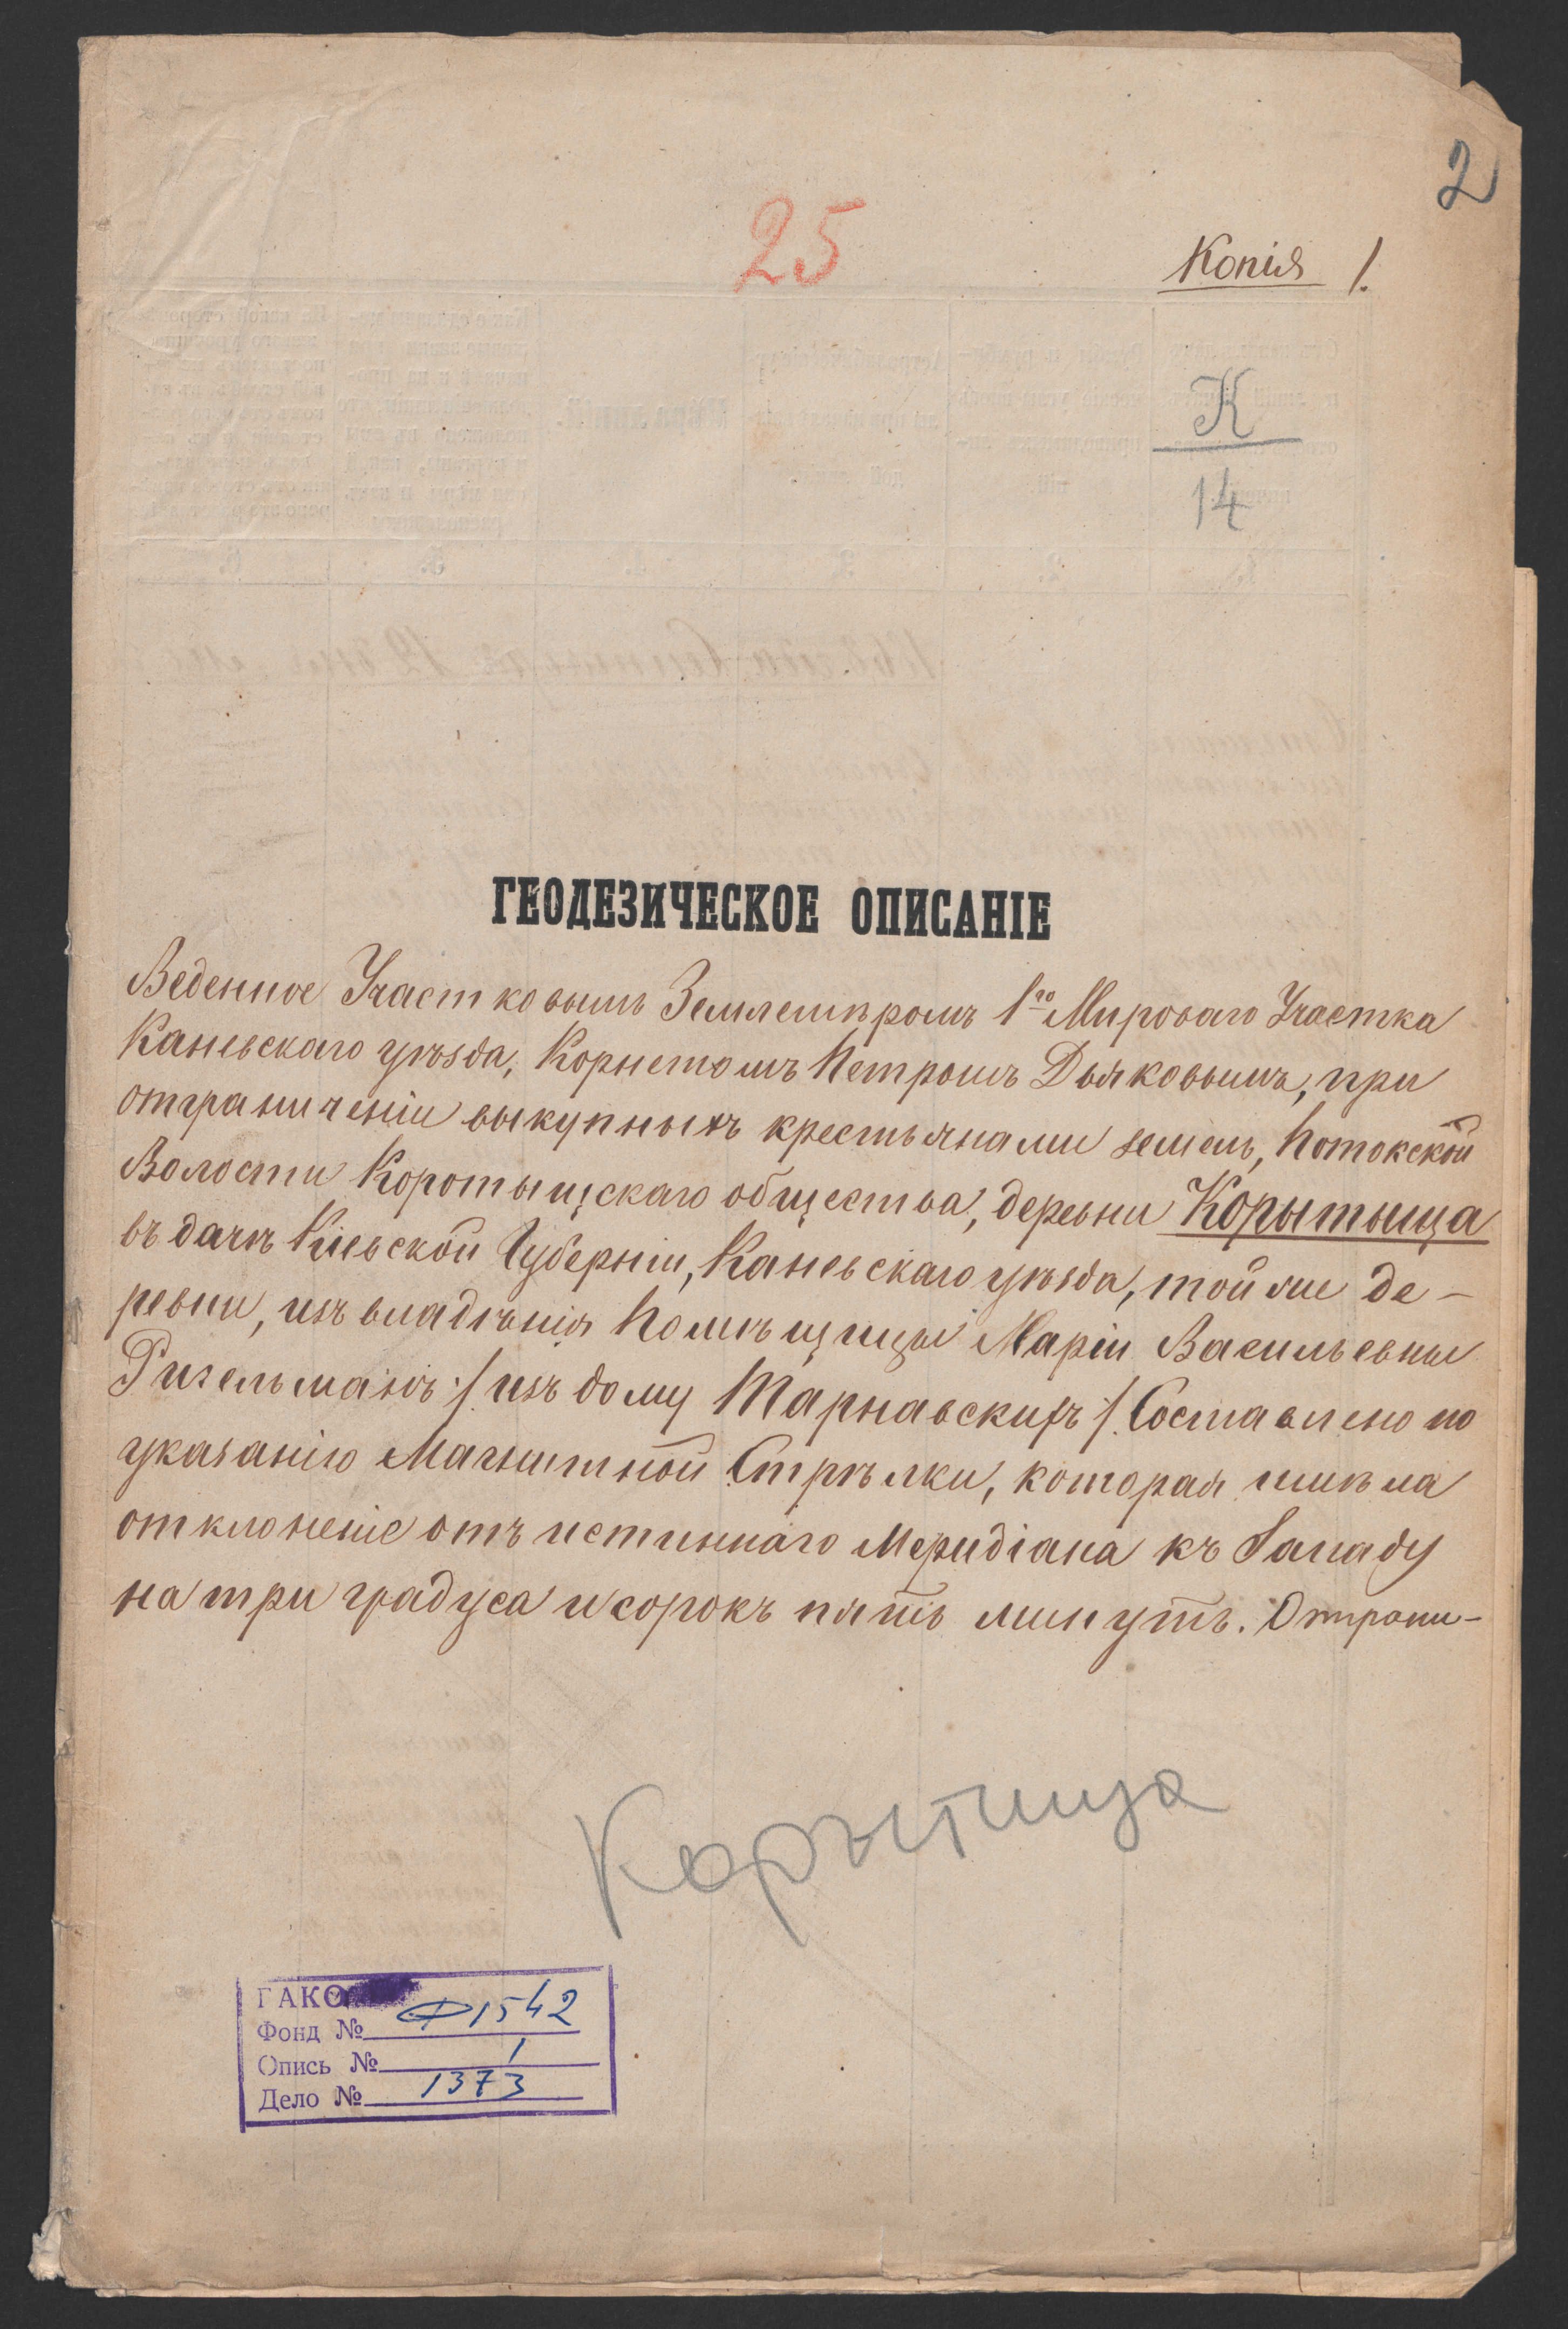 2
25
Копія 1.
К
14
ГЕОДЕЗИЧЕСКОЕ ОПИСАНІЕ
Веденное Участковымъ Землемѣромъ 1го Мироваго Участка
Каневскаго уѣзда, Корнетомъ Петромъ Дьяковымъ, при
отграниченіи выкупныхъ крестьянами земель, Потокской
Волости Коротыщскаго общества, деревни Корытыща
въ дачѣ Кіевской Губерніи, Каневскаго уѣзда, той же де-
ревни, изъ владѣнія Помѣщицы Маріи Васильевны
Ригельманъ /: изъ дому Тарнавскихъ :/. Составлено по
указанію Магнитной Стрѣлки, которая имѣла
отклоненіе отъ истиннаго Меридіана къ Западу
на три градуса и сорокъ пять минутъ. Отграни-
Корытища
ГАКО
Фонд № Ф1542
Опись № 1
Дело № 1373